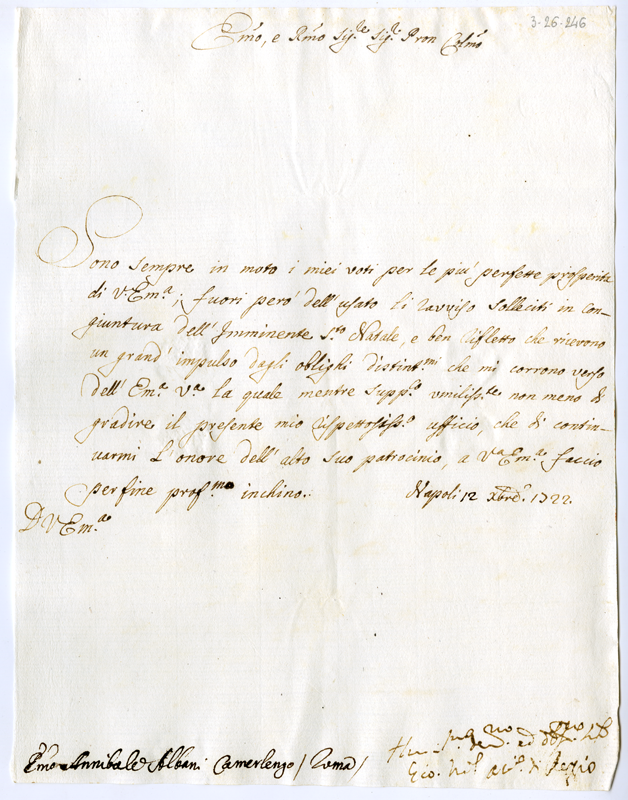 3-26-246
Emo, e Rmo Sig.re Sig.re Pron Colmo
Sono sempre in moto i miei voti per le più perfette prosperità
di V. Em.a; fuori però dell'usato li ravviso solleciti in con-
giuntura dell'Imminente S.to Natale, e ben rifletto che ricevono
un grand'impulso dagli oblighi distint.mi che mi corrono verso
dell'Em.a V.a la quale mentre supp.co umiliss.te non meno di
gradire il presente mio rispettosiss.o ufficio, che di contin-
uarmi l'onore dell'alto suo patrocinio, a V.a Em.a faccio
per fine prof.mo inchino.. Napoli 12 Xbre. 1722.
D V Em.a
Emo Annibale Albani Camerlengo / Roma /
ed
Gio.